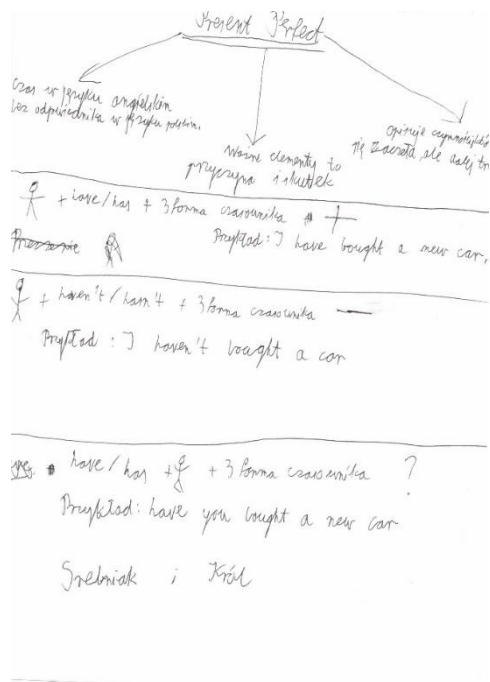 Present Perfect
Czas w języku angielskim
bez odpowiednika w języku polskim.
Ważne elementy to
przyczyna i skutek
Opisuje czynność która
się zaczęła, ale dalej tr
+ have/has + 3 forma czasownika +
Przykład: I have bought a new car.
+ haven't / hasn't + 3 forma czasownika —
Przykład: I haven't bought a car
have / has + + 3 forma czasownika ?
Przykład: have you bought a new car
Srebniak i Król